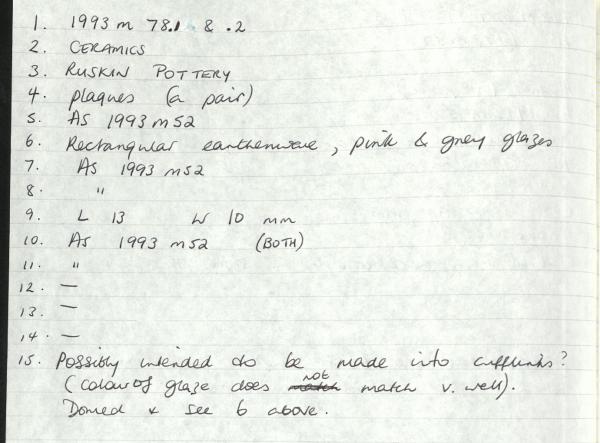 1. 1993 m 78.1 & .2
2. CERAMICS
3. RUSKIN POTTERY
4. plaques (a pair)
5. AS 1993 m52
6. Rectangular earthenware, pink & grey glazes
7. AS 1993 m52
8. "
9. L 13 W 10 mm
10. AS 1993 m52 (BOTH)
11. "
12. —
13. —
14. —
15. Possibly intended to be made into cufflinks?
(colour of glaze does match not match v. well).
Domed & see 6 above.